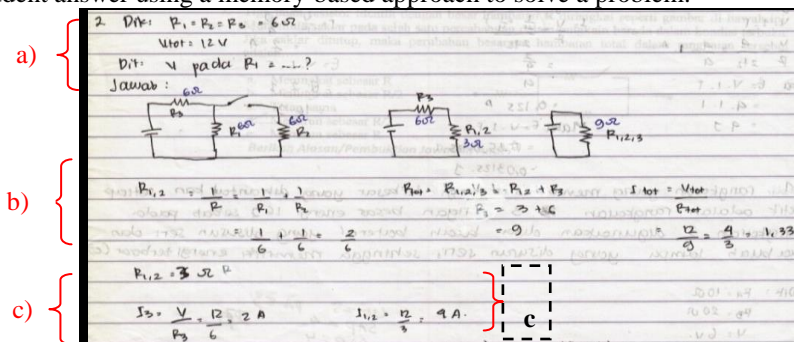 dent answer using a memory-based approach to solve a problem.
a)
2 Dik: R₁ = R₂ = R₃ = 6Ω
Vtot = 12 V
Dit: V pada R₁ = ....?
Jawab:
6Ω
R₃
R₁ 6Ω
6Ω
R₂
R₃
6Ω
R₁,₂
3Ω
9Ω
R₁,₂,₃
b)
R₁,₂ = 1/R = 1/R₁ + 1/R₂
= 1/6 + 1/6 = 2/6
R₁,₂ = 3 Ω
Rtot = R₁,₂,₃ = R₁,₂ + R₃
= 3 + 6
= 9
I tot = Vtot/Rtot
= 12/9 = 4/3 = 1,33
c)
I₃ = V/R₃ = 12/6 = 2 A
I₁,₂ = 12/3 = 4 A.
c